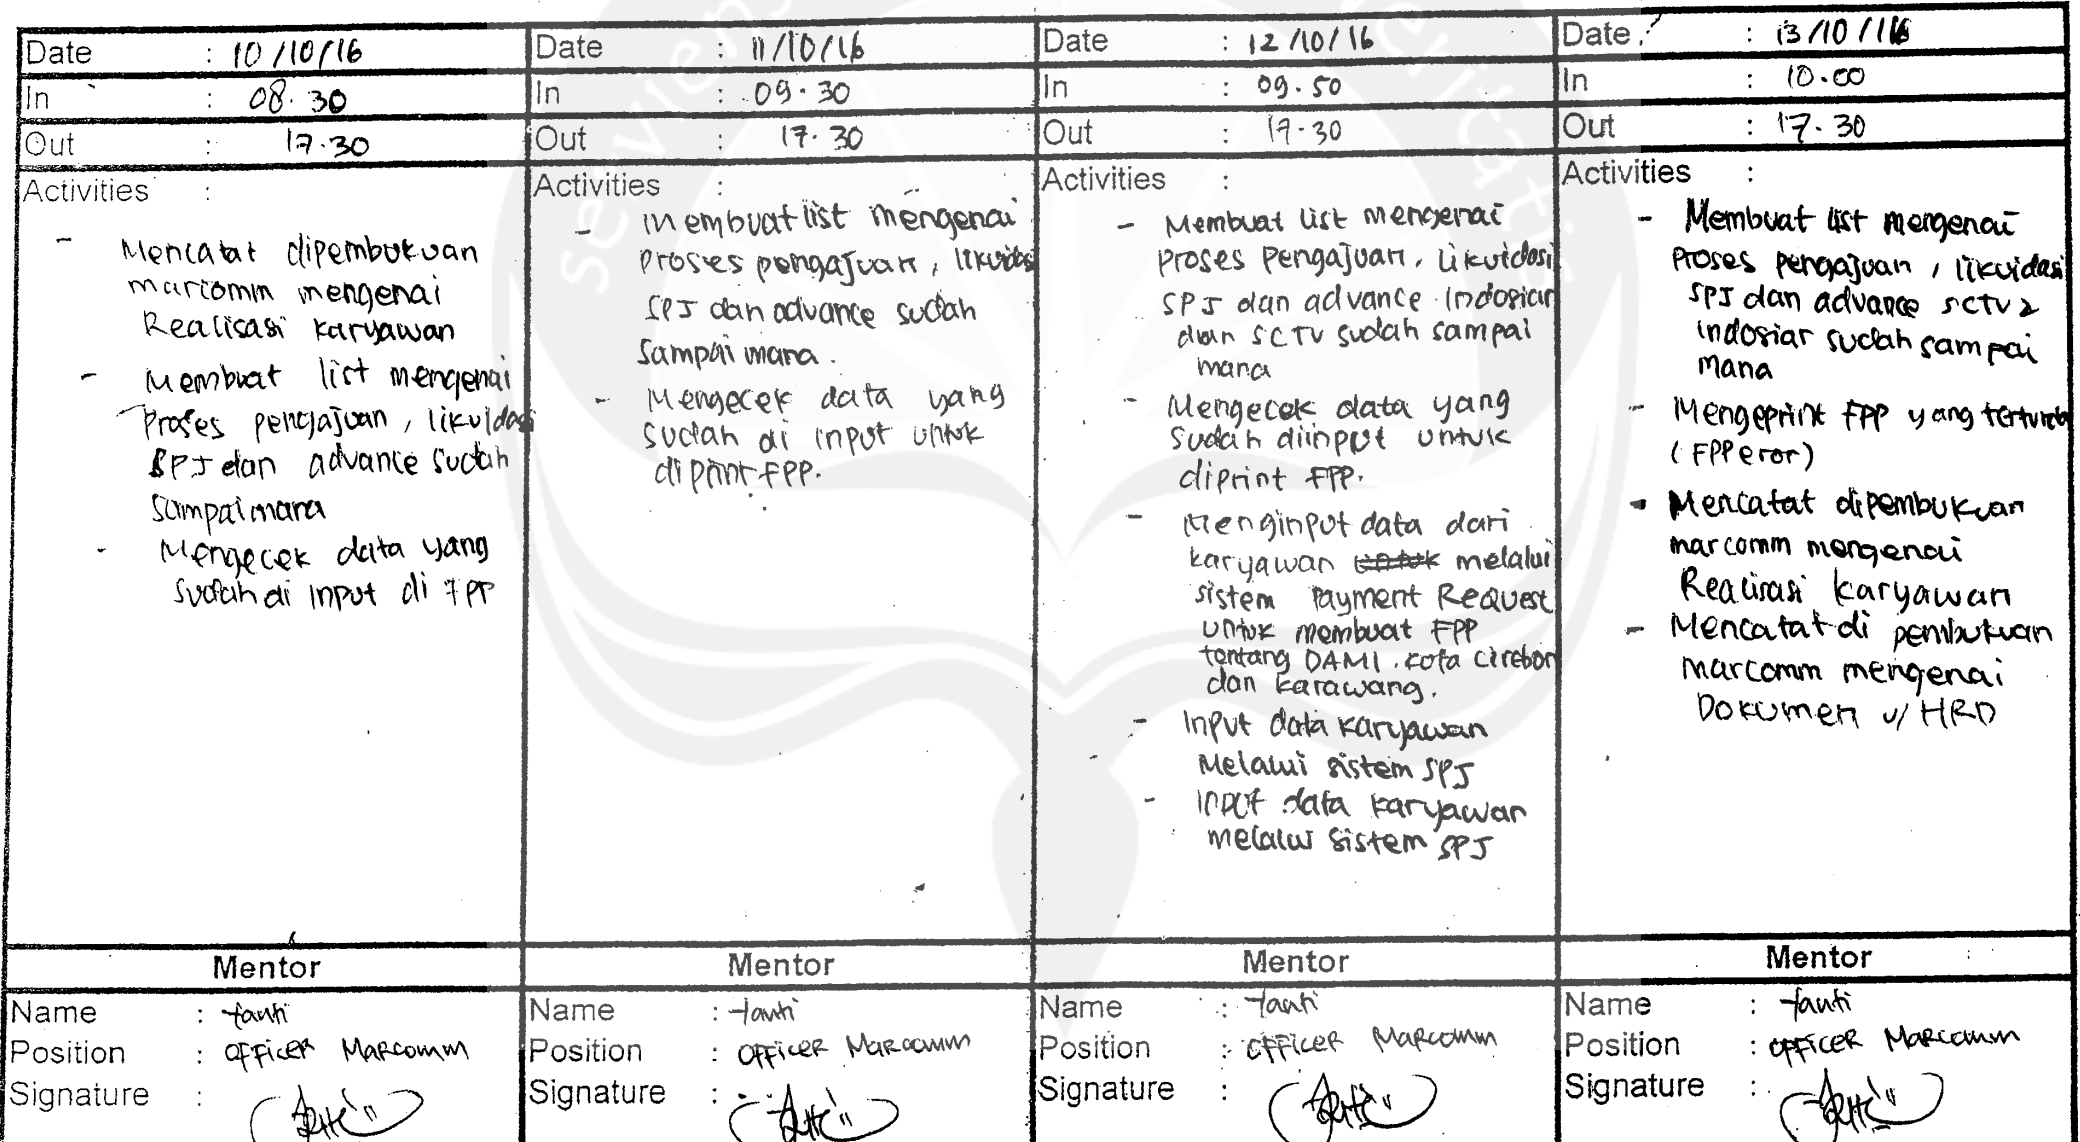 Date : 10/10/16
In : 08.30
Out : 17.30
Activities :
- Mencatat dipembukuan
marcomm mengenai
Realisasi karyawan
- Membuat list mengenai
Proses pengajuan, likuidasi
SPJ dan advance sudah
sampai mana
- Mengecek data yang
sudah di input di FPP
Mentor
Name : Yanti
Position : Officer Marcomm
Signature :
Date : 11/10/16
In : 09.30
Out : 17.30
Activities :
- Membuat list mengenai
proses pengajuan, likuidasi
SPJ dan advance sudah
sampai mana.
- Mengecek data yang
sudah di input untuk
di print FPP.
Mentor
Name : Yanti
Position : Officer Marcomm
Signature :
Date : 12/10/16
In : 09.50
Out : 17.30
Activities :
- Membuat list mengenai
proses pengajuan, likuidasi
SPJ dan advance Indosiar
dan SCTV sudah sampai
mana
- Mengecek data yang
sudah diinput untuk
diprint FPP.
- Menginput data dari
karyawan untuk melalui
sistem Payment Request
untuk membuat FPP
tentang DAMI. kota cirebon
dan karawang.
- Input data karyawan
Melalui sistem SPJ
- Input data karyawan
melalui sistem SPJ
Mentor
Name : Yanti
Position : Officer Marcomm
Signature :
Date : 13/10/16
In : 10.00
Out : 17.30
Activities :
- Membuat list mengenai
proses pengajuan, likuidasi
SPJ dan advance SCTV &
indosiar sudah sampai
mana
- Mengeprint FPP yang
(FPP eror)
- Mencatat dipembukuan
marcomm mengenai
Realisasi karyawan
- Mencatat di pembukuan
marcomm mengenai
Dokumen u/ HRD
Mentor
Name : Yanti
Position : Officer Marcomm
Signature :